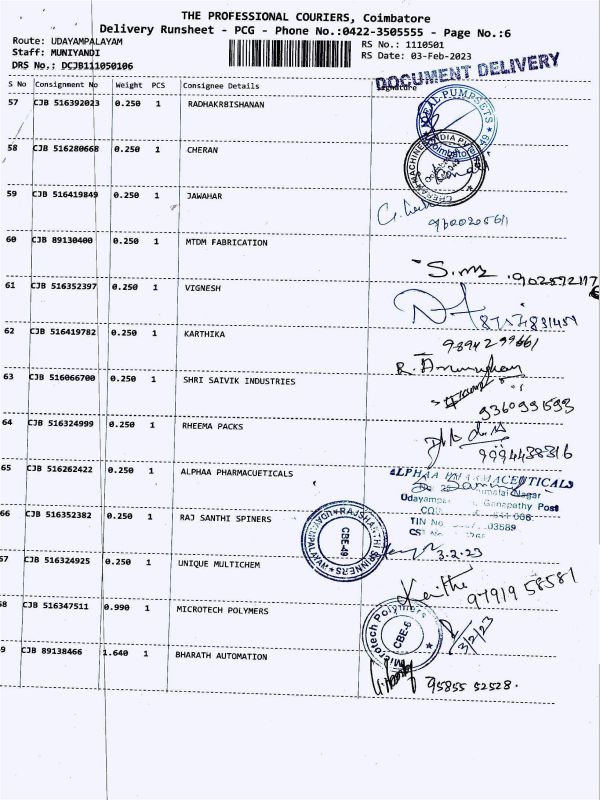 THE PROFESSIONAL COURIERS, Coimbatore
Delivery Runsheet - PCG - Phone No.:0422-3505555 - Page No.:6
Route: UDAYAMPALAYAM
RS No.: 1110501
Staff: MUNIYANDI
RS Date: 03-Feb-2023
DRS No.; DCJB111050106
DOCUMENT DELIVERY
S No Consignment No Weight PCS Consignee Details Signature
57 CJB 516392023 0.250 1 RADHAKRBISHANAN
58 CJB 516280668 0.250 1 CHERAN
59 CJB 516419849 0.250 1 JAWAHAR
60 CJB 89130400 0.250 1 MTDM FABRICATION
61 CJB 516352397 0.250 1 VIGNESH
62 CJB 516419782 0.250 1 KARTHIKA
9894299661
63 CJB 516066700 0.250 1 SHRI SAIVIK INDUSTRIES
9360991593
64 CJB 516324999 0.250 1 RHEEMA PACKS
9994438316
65 CJB 516262422 0.250 1 ALPHAA PHARMACUETICALS
ALPHAA PHARMACEUTICALS
Nagar
Udayampa Ganapathy Post
TIN No 03589
66 CJB 516352382 0.250 1 RAJ SANTHI SPINERS
RAJSHANTHI SPINNERS
UDAYAMPALAYAM
CBE-49
3.2.23
57 CJB 516324925 0.250 1 UNIQUE MULTICHEM
97919 58581
58 CJB 516347511 0.990 1 MICROTECH POLYMERS
Microtech Polymers
CBE-6
3/2/23
9 CJB 89138466 1.640 1 BHARATH AUTOMATION
95855 52528.